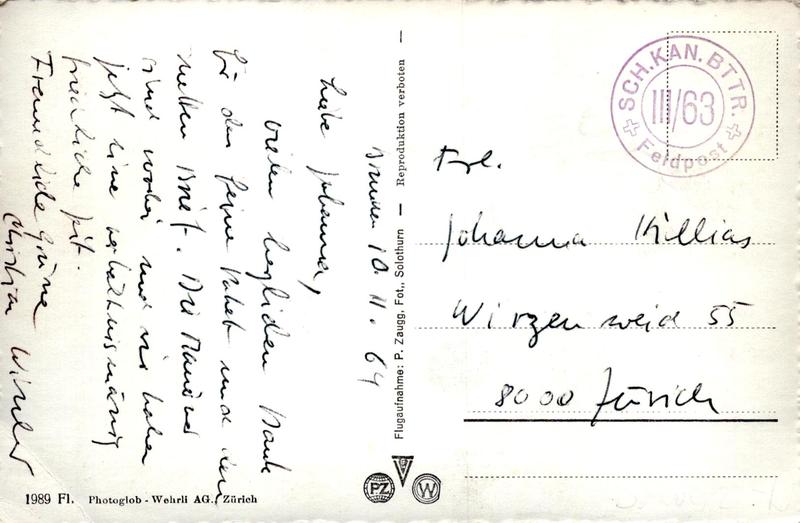 10. 11. 64
Liebe Johanna,
Vielen herzlichen Dank
für das feine Paket und den
netten Brief. Die Manöver
sind vorbei und wir haben
jetzt eine verhältnismässig
friedliche Zeit.
Freundliche Grüsse
Christian
1989 Fl. Photoglob - Wehrli AG., Zürich
Flugaufnahme: P. Zaugg, Fot., Solothurn — Reproduktion verboten —
PZ
W
SCH. KAN. BTTR.
III/63
Feldpost
Frl.
Johanna Killias
Wirzenweid 55
8000 Zürich